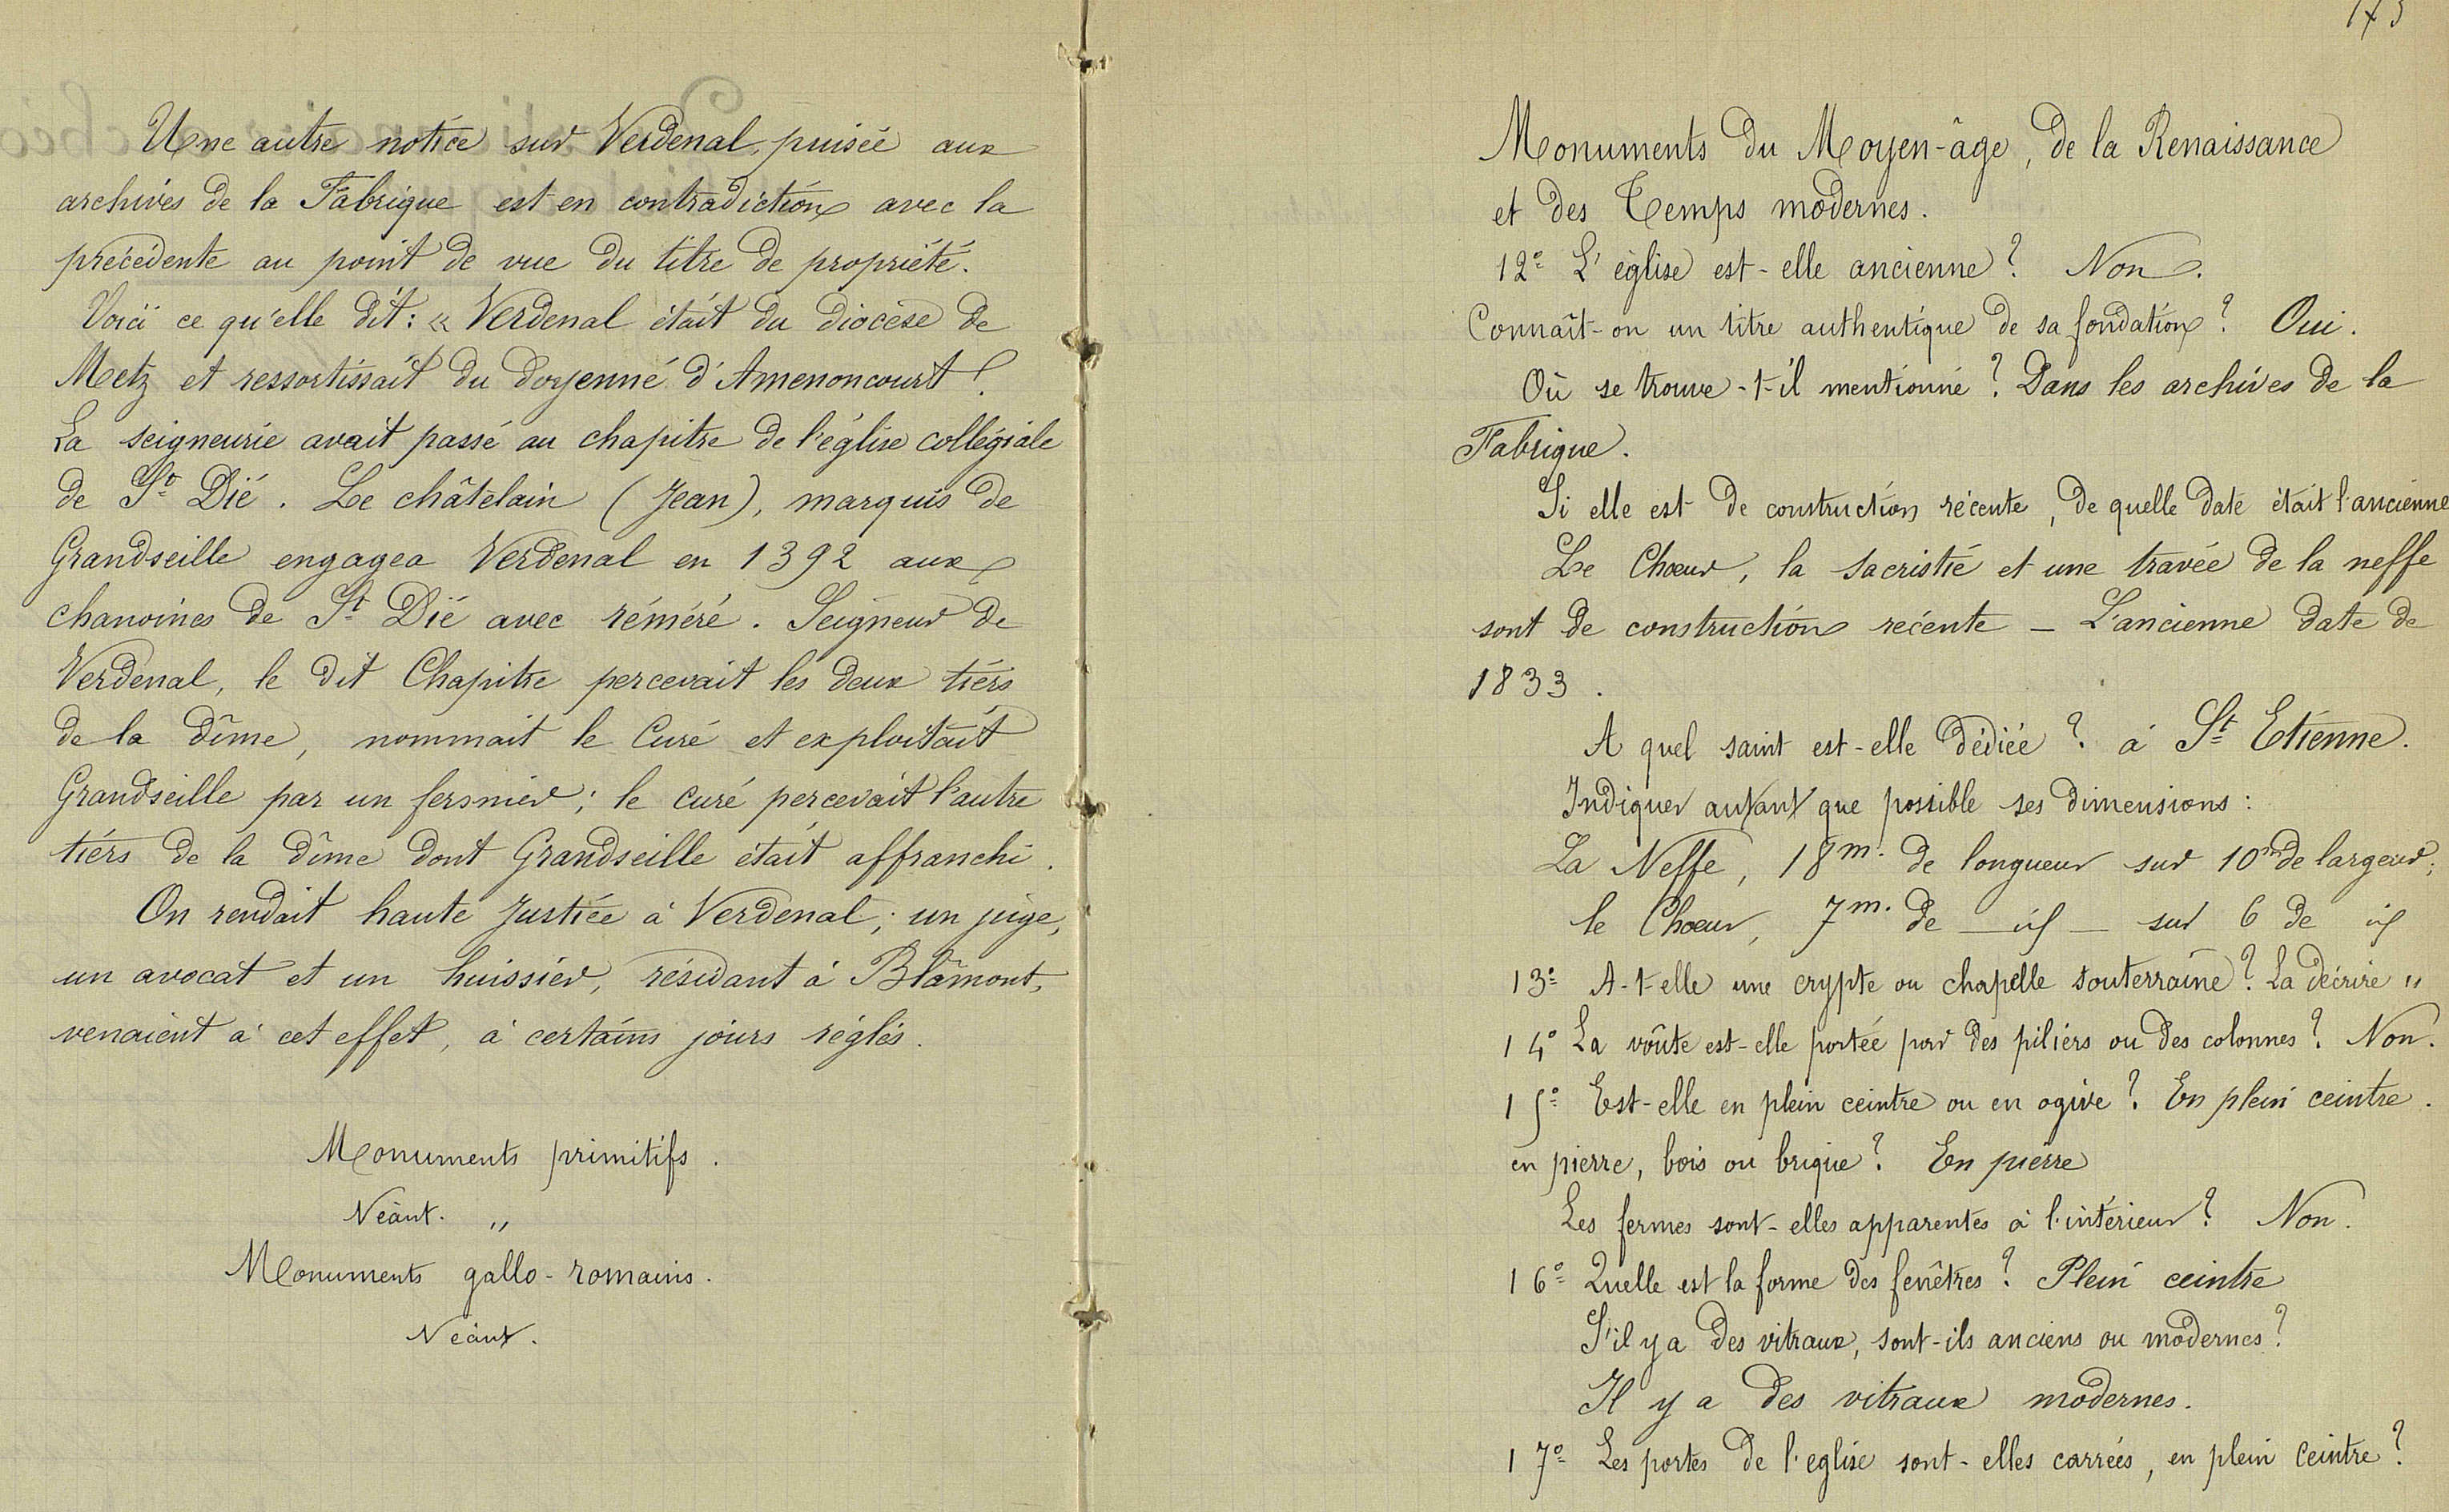 Une autre notice sur Verdenal, puisée aux
archives de la Fabrique est en contradiction avec la
précédente au point de vue du titre de propriété.
Voici ce qu'elle dit : « Verdenal était du diocèse de
Metz et ressortissait du doyenné d'Amenoncourt !
La seigneurie avait passé au chapitre de l'église collégiale
de St Dié . Le châtelain (Jean), marquis de
Grandseille engagea Verdenal en 1392 aux
chanoines de St Dié avec réméré . Seigneur de
Verdenal, le dit Chapitre percevait les deux tiers
de la dîme, nommait le Curé et exploitait
Grandseille par un fermier ; le curé percevait l'autre
tiers de la dîme dont Grandseille était affranchi .
On rendait haute justice à Verdenal ; un juge,
un avocat et un huissier, résidant à Blâmont,
venaient à cet effet, à certains jours réglés .
Monuments primitifs .
Néant. "
Monuments gallo-romains .
Néant .
173
Monuments du Moyen-âge, de la Renaissance
et des Temps modernes .
12º L'église est-elle ancienne ? Non .
Connaît-on un titre authentique de sa fondation ? Oui .
Où se trouve-t-il mentionné ? Dans les archives de la
Fabrique .
Si elle est de construction récente, de quelle date était l'ancienne
Le Chœur, la sacristie et une travée de la neffe
sont de construction récente - L'ancienne date de
1833 .
A quel saint est-elle dédiée ? à St Etienne .
Indiquer autant que possible ses dimensions :
La Neffe, 18m. de longueur sur 10m de largeur ;
le Chœur, 7m. de - id - sur 6 de id
13º A-t-elle une crypte ou chapelle souterraine ? La décrire "
14º La voûte est-elle portée par des piliers ou des colonnes ? Non .
15º Est-elle en plein ceintre ou en ogive ? En plein ceintre .
en pierre, bois ou brique ? En pierre
Les fermes sont-elles apparentes à l'intérieur ? Non .
16º Quelle est la forme des fenêtres ? Plein ceintre
S'il y a des vitraux, sont-ils anciens ou modernes ?
Il y a des vitraux modernes .
17º Les portes de l'eglise sont-elles carrées, en plein ceintre ?